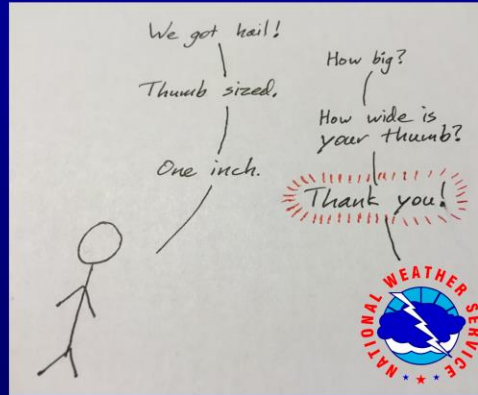 We got hail!
How big?
Thumb sized.
How wide is
your thumb?
One inch.
Thank you!
NATIONAL WEATHER SERVICE